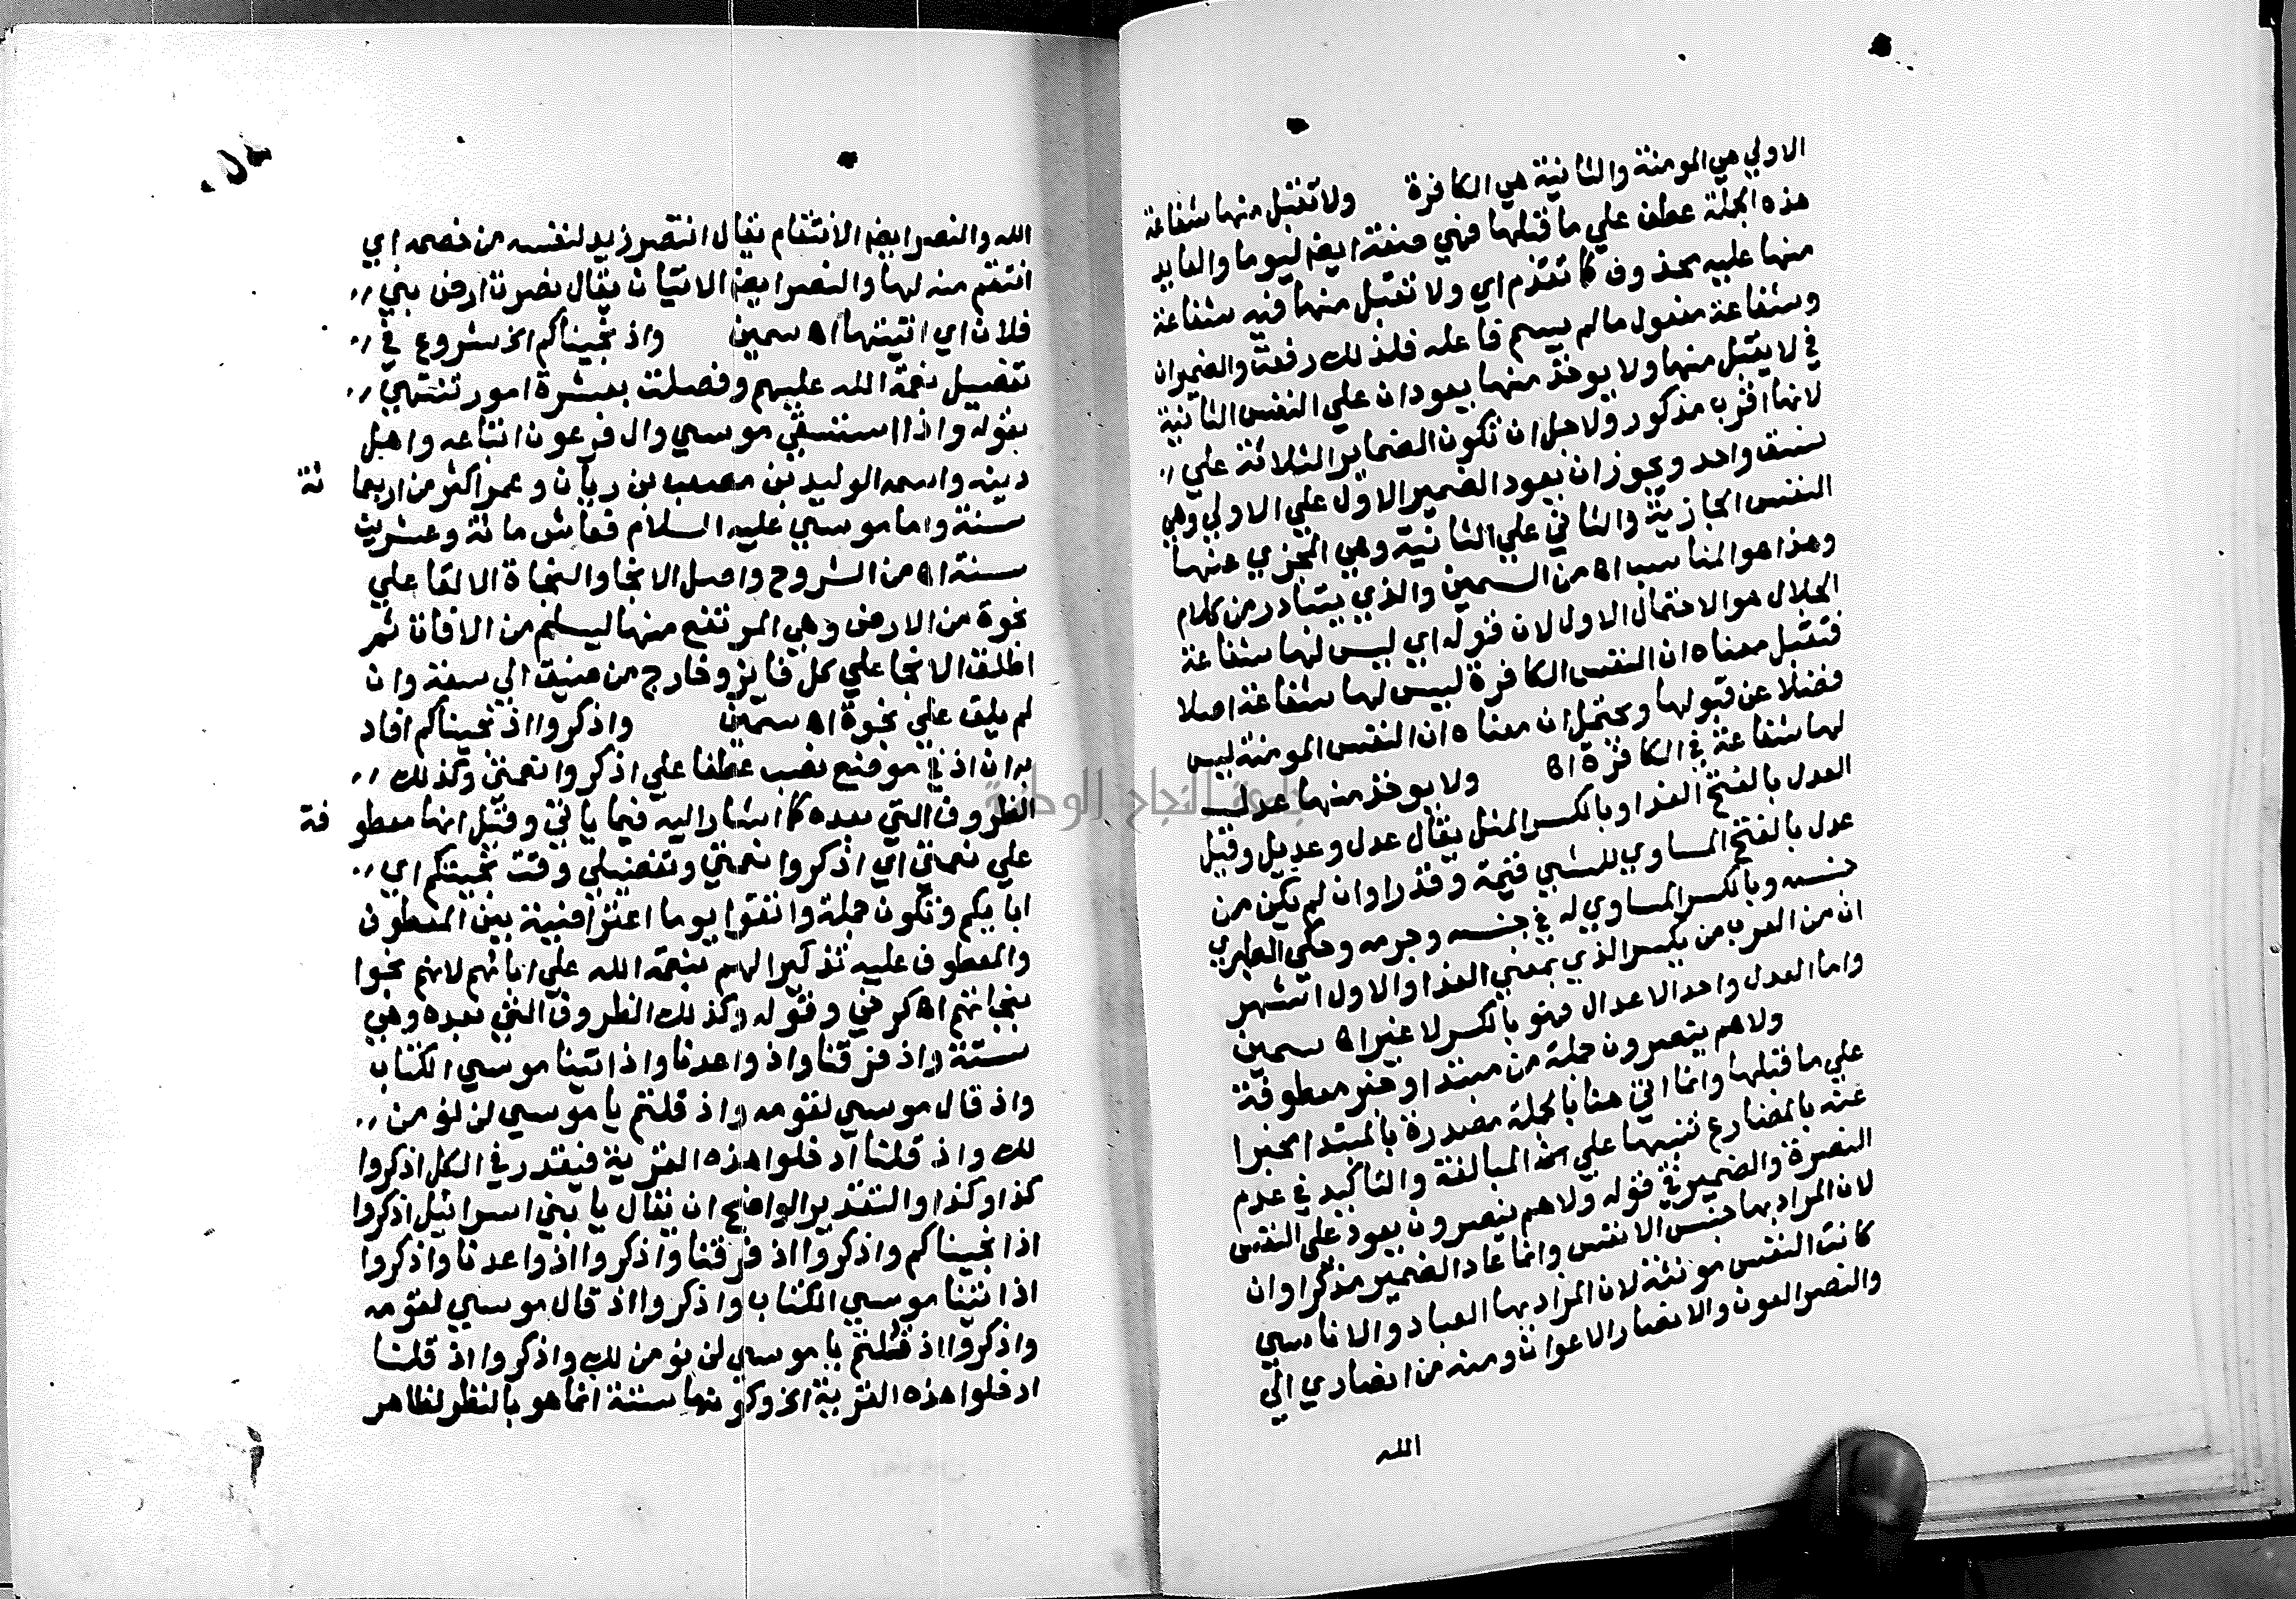 الاولي هي المومنة والثانية هي الكافرة ولا تقبل منها شفاعة
هذه الجملة عطف علي ما قبلها فهي صفة ايضا ليوما والعايد
منها عليه محذوف كما تقدم اي ولا تقبل منها فيه شفاعة
وشفاعة مفعول ما لم يسم فاعله فلذلك رفعت والضميران
في لا يقبل منها ولا يوخذ منها يعودان علي النفس الثانية
لانها اقرب مذكور ولاجل ان تكون الضماير الثلاثة علي
نسق واحد ويجوز ان يعود الضمير الاول علي الاولي وهي
النفس الجازية والثاني علي الثانية وهي المجزي عنها
وهذا هو المناسب اه من السمين والذي يتبادر من كلام
الجلال هو الاحتمال الاول لان قوله اي ليس لها شفاعة
فتقبل معناه ان النفس الكافرة ليس لها شفاعة اصلا
فضلا عن قبولها ويحتمل ان معناه ان النفس المومنة ليس
لها شفاعة في الكافرة اه ولا يوخذ منها عدل
العدل بالفتح الفدا وبالكسر المثل يقال عدل وعديل وقيل
عدل بالفتح المساوي للشي قيمة وقدرا وان لم يكن من
جنسه وبالكسر المساوي له في جنسه وجرمه وحكي الطبري
ان من العرب من يكسر الذي بمعني الفدا والاول اشهر
واما العدل واحد الاعدال فهو بالكسر لا غير اه سمين
ولا هم ينصرون جملة من مبتدا وخبر معطوفة
علي ما قبلها وانما اتي هنا بالجملة مصدرة بالمبتدا مخبرا
عنه بالمضارع تنبيها علي المبالغة والتاكيد في عدم
النصرة والضمير في قوله ولا هم ينصرون يعود علي النفس
لان المراد بها جنس الانفس وانما عاد الضمير مذكرا وان
كانت النفس مونثة لان المراد بها العباد والاناسي
والنصر العون والانصار الاعوان ومنه من انصاري الي
الله
الله والنصر ايضا الانتقام يقال انتصر زيد لنفسه من خصمه اي
انتقم منه لها والنصر ايضا الاتيان يقال نصرت ارض بني
فلان اي اتيتها اه سمين واذ نجيناكم الخ شروع في
تفصيل نعمة الله عليهم وفصلت بعشرة امور تنتهي
بقوله واذ استسقي موسي وال فرعون اتباعه واهل
دينه واسمه الوليد بن مصعب بن ريان وعمر اكثر من اربعمائة
سنة واما موسي عليه السلام فعاش مائة وعشرين
سنة اه من الشروح واصل الانجا والنجاة الالقا علي
نجوة من الارض وهي المرتفع منها ليسلم من الافات ثم
اطلق الانجا علي كل فايز وخارج من ضيق الي سعة وان
لم يلق علي نجوة اه سمين واذكروا اذ نجيناكم افاد
به ان اذ في موضع نصب عطفا علي اذكروا نعمتي وكذلك
الظروف التي بعده كما اشار اليه فيما ياتي وقيل انها معطوفة
علي نعمتي اي اذكروا نعمتي وتفضيلي وقت نجيتكم اي
ابايكم وتكون جملة واتقوا يوما اعتراضية بين المعطوف
والمعطوف عليه تذكيرا لهم بنعمة الله علي ابائهم لانهم نجوا
بنجاتهم اه كرخي وقوله وكذلك الظروف التي بعده وهي
ستة واذ فرقنا واذ واعدنا واذ اتينا موسي الكتاب
واذ قال موسي لقومه واذ قلتم يا موسي لن نومن
لك واذ قلنا ادخلوا هذه القرية فيقدر في الكل اذكروا
كذا وكذا والتقدير الواضح ان يقال يا بني اسرائيل اذكروا
اذ انجيناكم واذكروا اذ فرقنا واذكروا اذ واعدنا واذكروا
اذ اتينا موسي الكتاب واذكروا اذ قال موسي لقومه
واذكروا اذ قلتم يا موسي لن نومن لك واذكروا اذ قلنا
ادخلوا هذه القرية الخ وكونها ستة انما هو بالنظر لظاهر
جامعة النجاح الوطنية